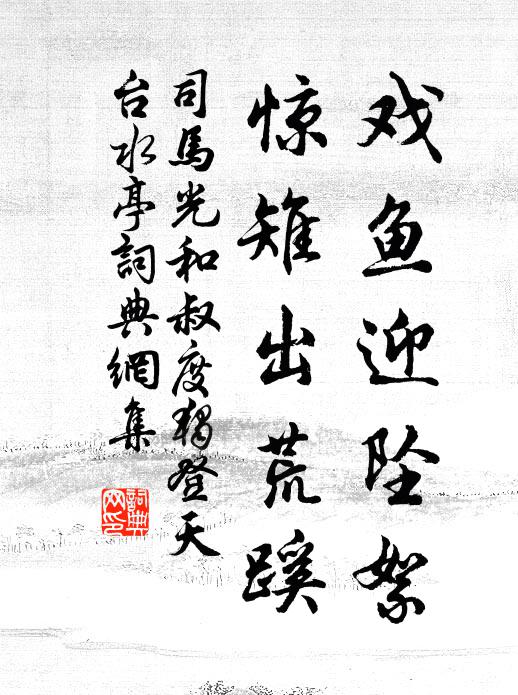 戏鱼迎坠絮
惊雉出荒蹊
司馬光和叔度獨登天
台水亭詞典網集
詞典
网印